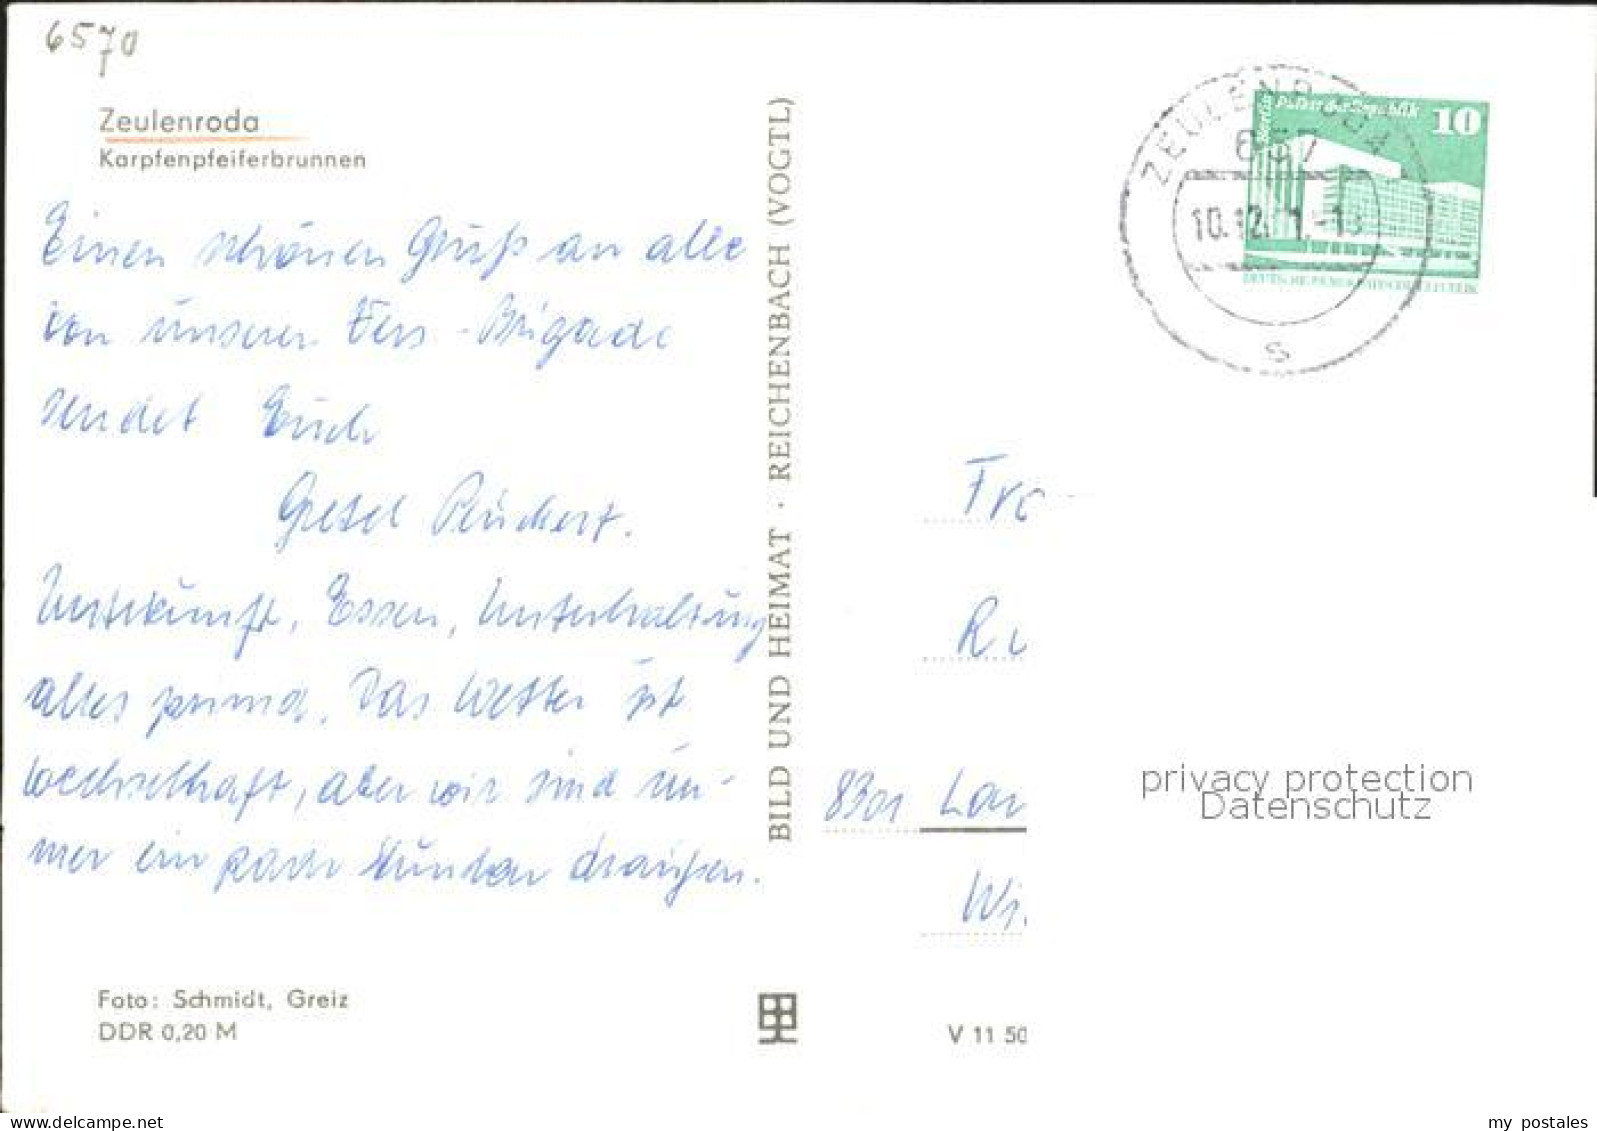 6570
Zeulenroda
Karpfenpfeiferbrunnen
Einen schönen Gruß an alle
von unserer Vers-Brigade
sendet Euch
Gretel
Unterkunft, Essen, Unterhaltung
alles prima. Das Wetter ist
wechselhaft, aber wir sind im-
mer ein paar Stunden draußen.
Foto: Schmidt, Greiz
DDR 0,20 M
BILD UND HEIMAT · REICHENBACH (VOGTL)
ZEULENRODA
657
10.12.
S
Berlin Palast der Republik 10
DEUTSCHE DEMOKRATISCHE REPUBLIK
8301
V 11 50
privacy protection
Datenschutz
www.delcampe.net
my_postales